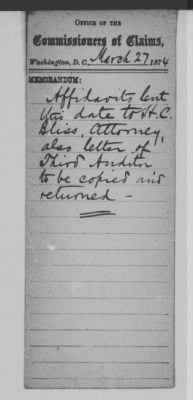 OFFICE OF THE
Commissioners of Claims,
Washington, D. C., March 27 1874
MEMORANDUM:
Affidavits lent
this date to H. C.
Bliss, Attorney,
also letter of
Third Auditor
to be copied and
returned -